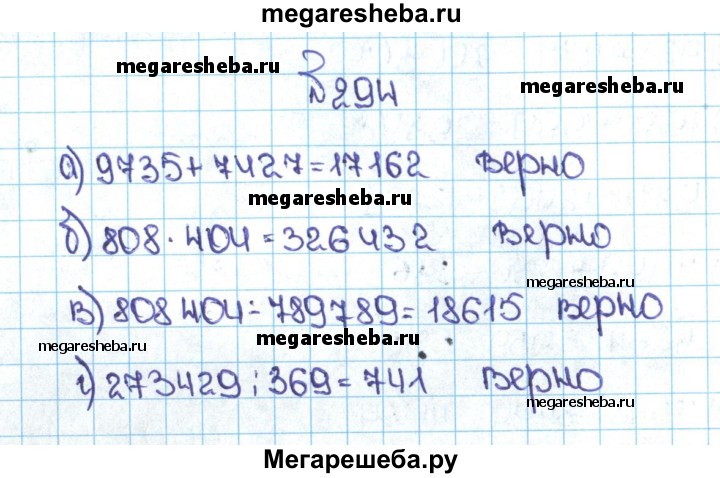 megaresheba.ru
megaresheba.ru
№294
megaresheba.ru
а) 9735+7427=17162 верно
megaresheba.ru
б) 808·404=326432 верно
megaresheba.ru
в) 808404-789789=18615 верно
megaresheba.ru
megaresheba.ru
г) 273429:369=741 верно
megaresheba.ru
Мегарешеба.ру